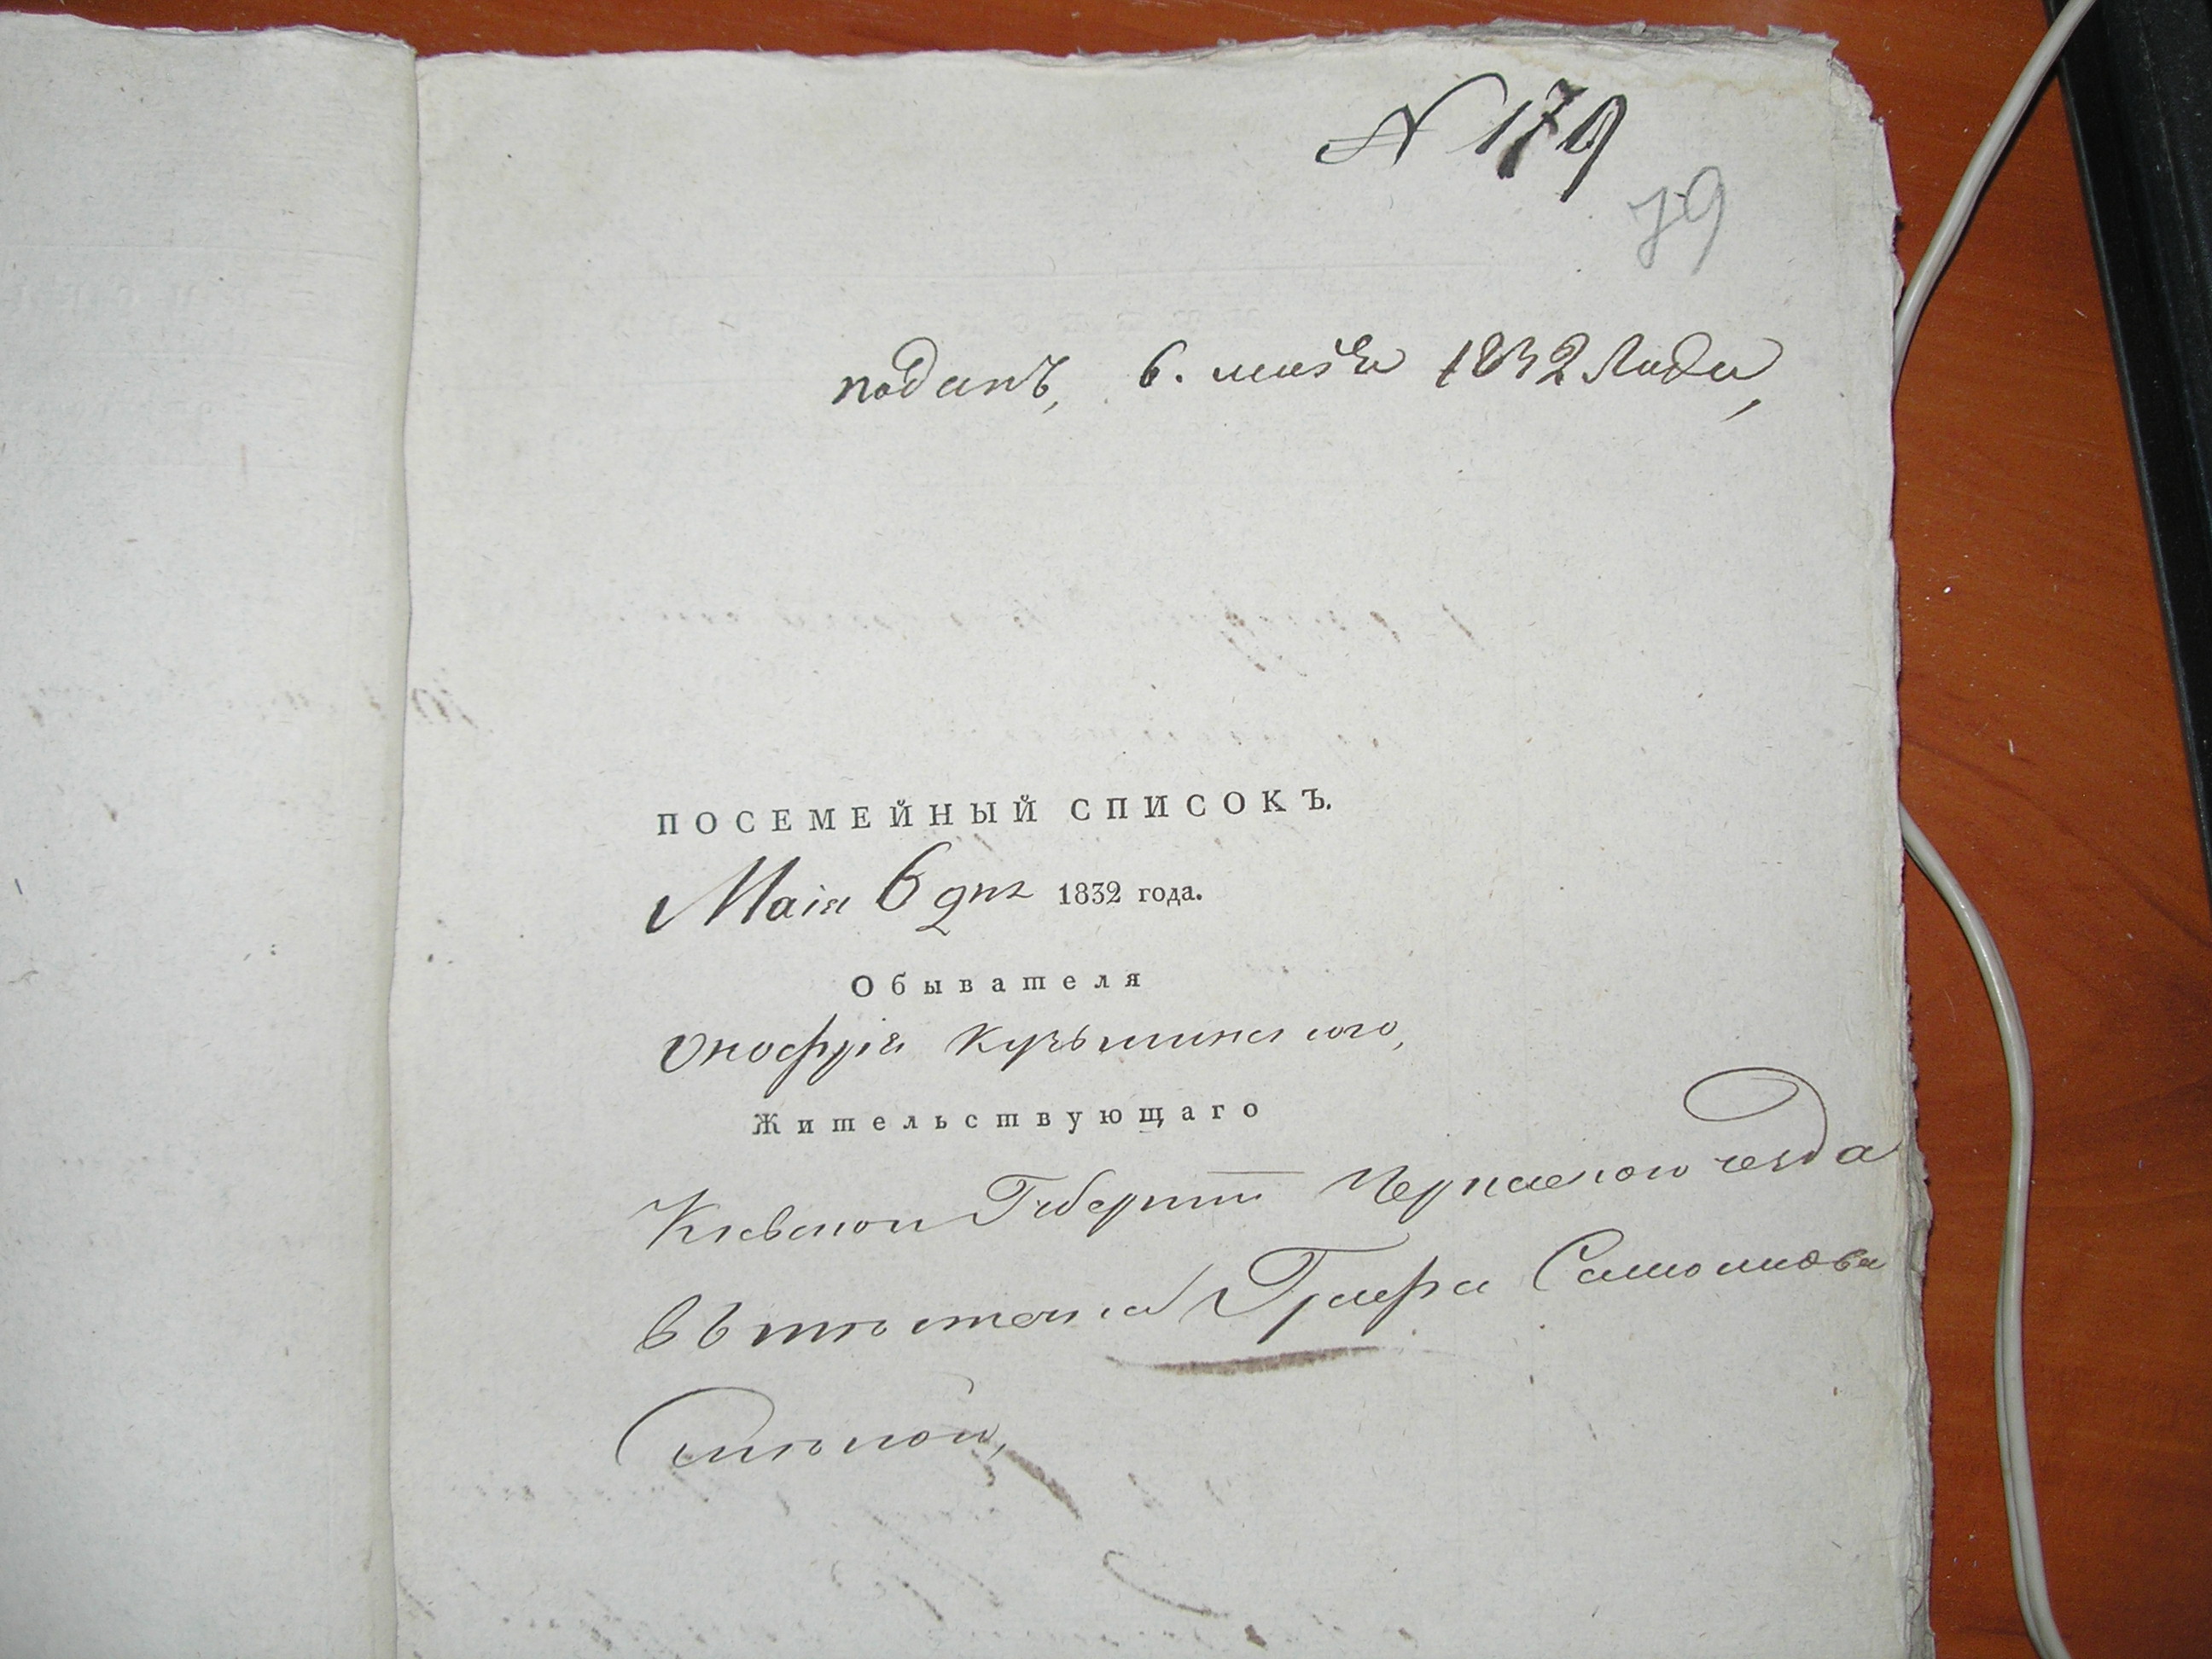 N 179
79
поданъ, 6. маія 1832 Года,
ПОСЕМЕЙНЫЙ СПИСОКЪ.
Маія 6 дня 1832 года.
Обывателя
Онофрія Кузьминского,
Жительствующаго
Кіевской Губерніи Черкаского уезда
въ местечке Графа Самойлова
Смелой,